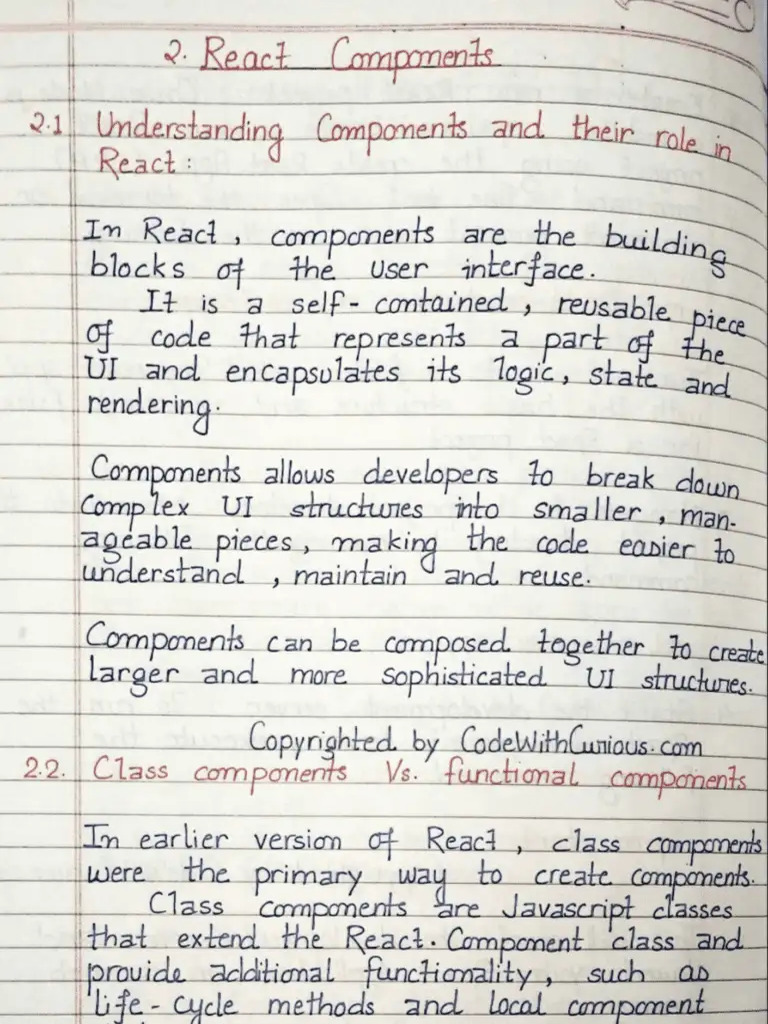 2. React Components
2.1 Understanding Components and their role in
React:
In React, components are the building
blocks of the user interface.
It is a self-contained, reusable piece
of code that represents a part of the
UI and encapsulates its logic, state and
rendering.
Components allows developers to break down
complex UI structures into smaller, man-
ageable pieces, making the code easier to
understand, maintain and reuse.
Components can be composed together to create
larger and more sophisticated UI structures.
Copyrighted by CodeWithCurious.com
2.2. Class components Vs. functional components
In earlier version of React, class components
were the primary way to create components.
Class components are Javascript classes
that extend the React.Component class and
provide additional functionality, such as
life-cycle methods and local component